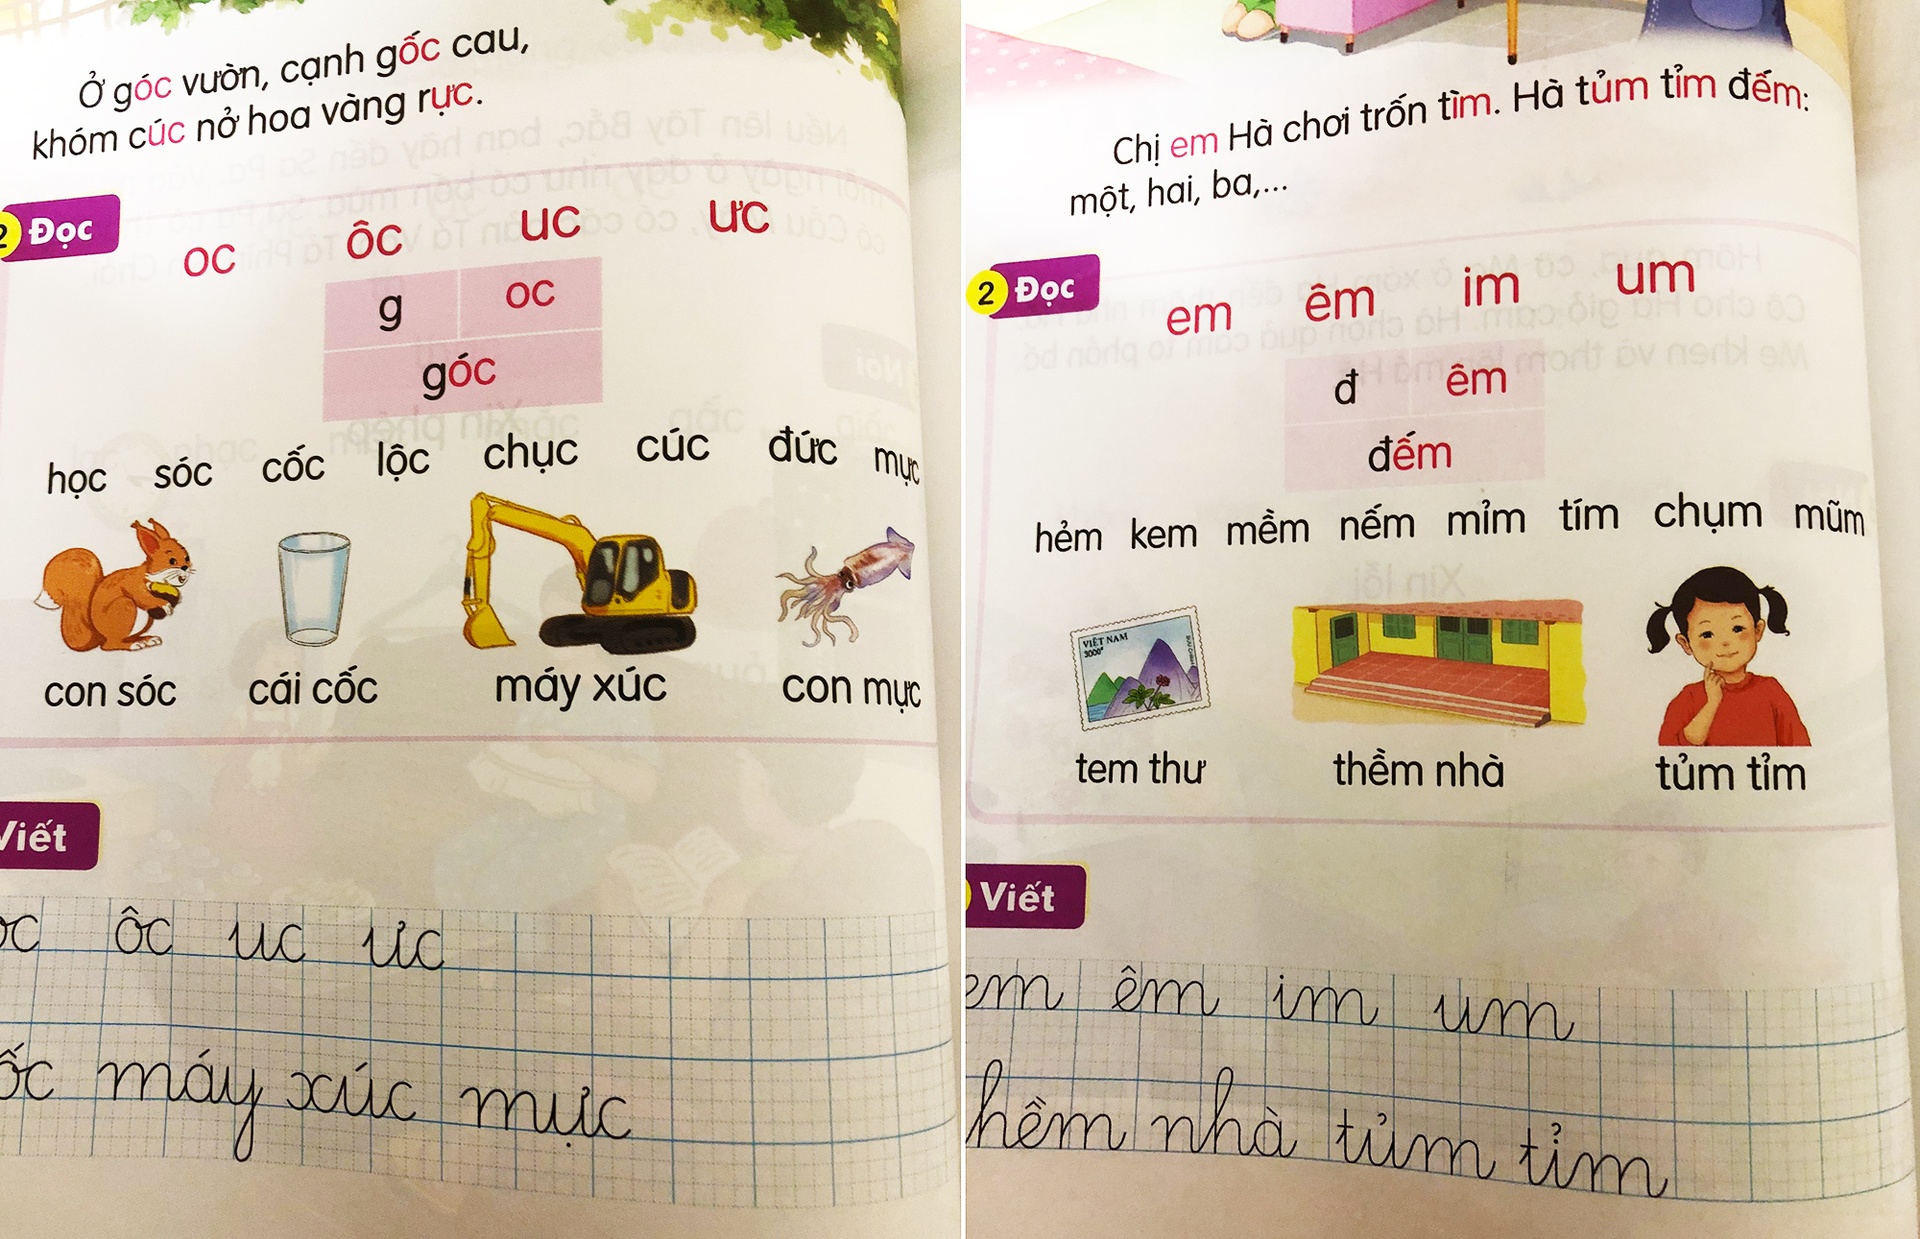 Ở góc vườn, cạnh gốc cau,
khóm cúc nở hoa vàng rực.
2 Đọc
oc ôc uc ưc
g oc
góc
học sóc cốc lộc chục cúc đức mực
con sóc cái cốc máy xúc con mực
Viết
oc ôc uc ưc
máy xúc mực
Chị em Hà chơi trốn tìm. Hà tủm tỉm đếm:
một, hai, ba,...
2 Đọc
em êm im um
đ êm
đếm
hẻm kem mềm nếm mỉm tím chụm mũm
VIỆT NAM
3000đ
tem thư thềm nhà tủm tỉm
Viết
em êm im um
hềm nhà tủm tỉm